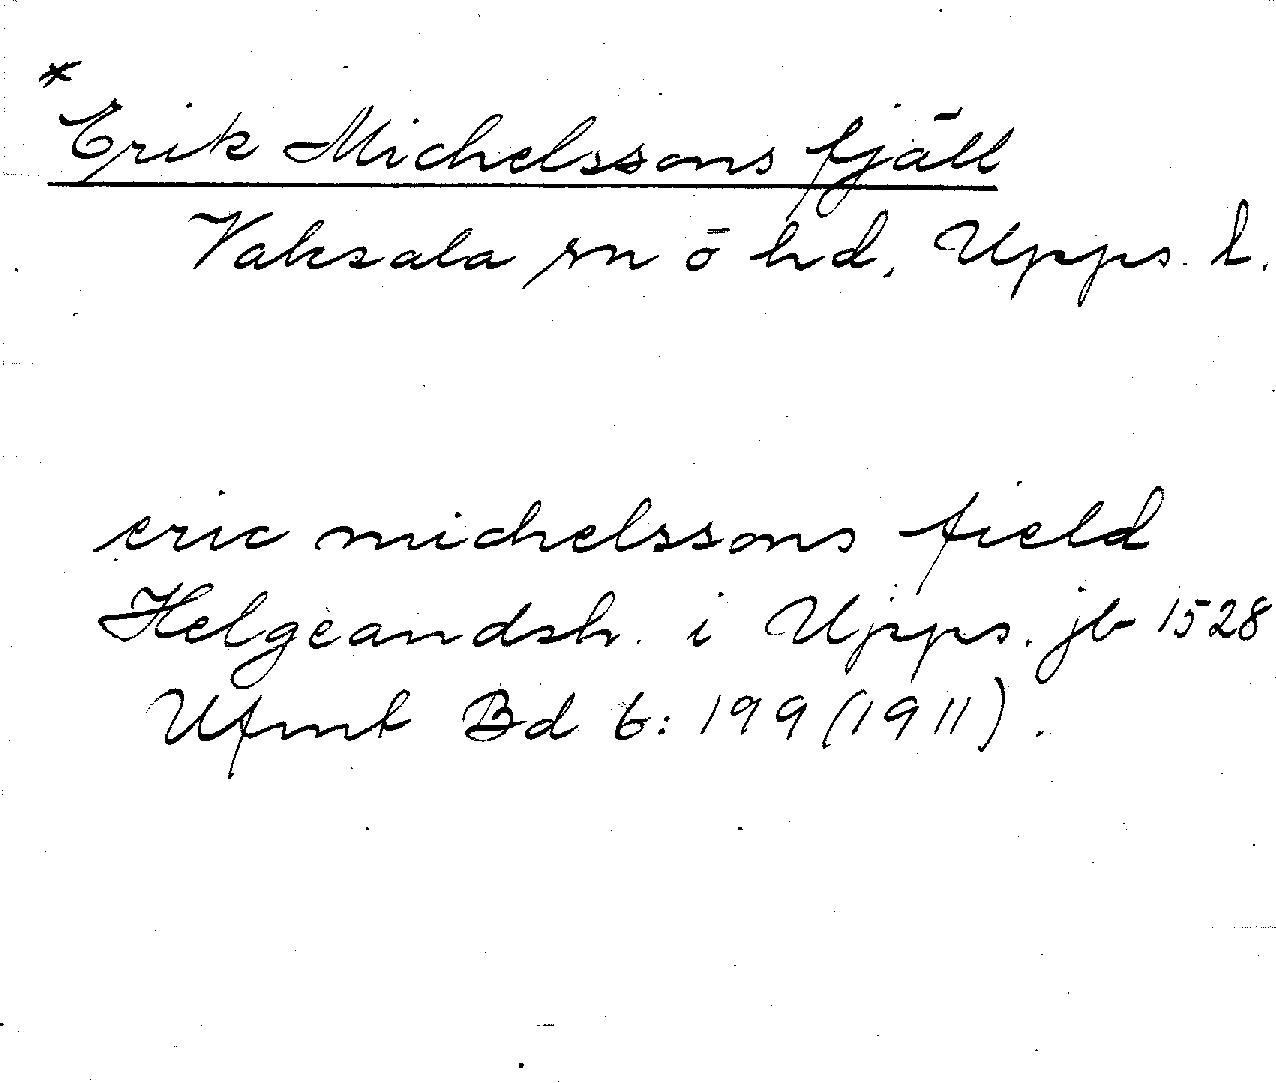 *
Erik Michelssons fjäll
Vaksala sn ö hd, Upps. l.
eric michelssons field
Helgeandsh. i Upps. jb 1528
Ufmt Bd 6: 199 (1911).